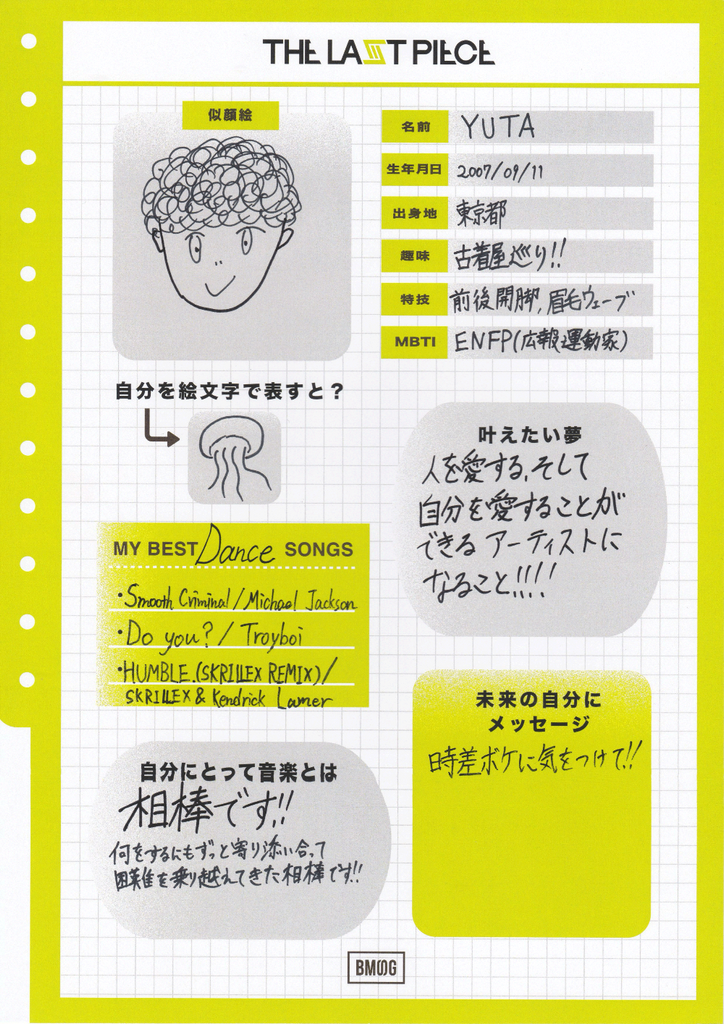 THE LAST PIECE
似顔絵
名前 YUTA
生年月日 2007/09/11
出身地 東京都
趣味 古着屋巡り!!
特技 前後開脚, 眉毛ウェーブ
MBTI ENFP(広報運動家)
自分を絵文字で表すと?
叶えたい夢
人を愛する、そして
自分を愛することが
できる アーティストに
なること!!!!
MY BEST Dance SONGS
・Smooth Criminal / Michael Jackson
・Do you? / Troyboi
・HUMBLE.(SKRILLEX REMIX)/
SKRILLEX & Kendrick Lamer
未来の自分に
メッセージ
時差ボケに気をつけて!!
自分にとって音楽とは
相棒です!!
何をするにもずっと寄り添い合って
困難を乗り越えてきた相棒です!!
BMSG